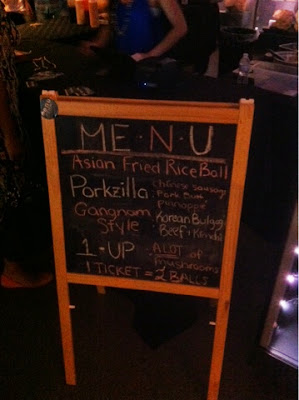 ME·N·U
Asian Fried Rice Ball
Porkzilla : chinese sausage
Pork Butt
pineapple
Gangnam : Korean Bulgogi
Style Beef + Kimchi
1·UP : A LOT of
mushrooms
1 TICKET = 2 BALLS